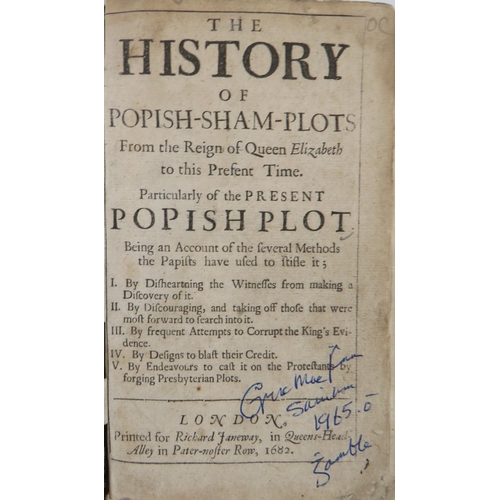 THE
HISTORY
OF
POPISH-SHAM-PLOTS
From the Reign of Queen Elizabeth
to this Preſent Time.
Particularly of the PRESENT
POPISH PLOT
Being an Account of the ſeveral Methods
the Papiſts have uſed to ſtifle it;
I. By Diſheartning the Witneſſes from making a
Diſcovery of it.
II. By Diſcouraging, and taking off thoſe that were
moſt forward to ſearch into it.
III. By frequent Attempts to Corrupt the King's Evi-
dence.
IV. By Deſigns to blaſt their Credit.
V. By Endeavours to caſt it on the Proteſtants by
forging Presbyterian Plots.
LONDON,
Printed for Richard Janeway, in Queens-Head-
Alley in Pater-noſter Row, 1682.
1965